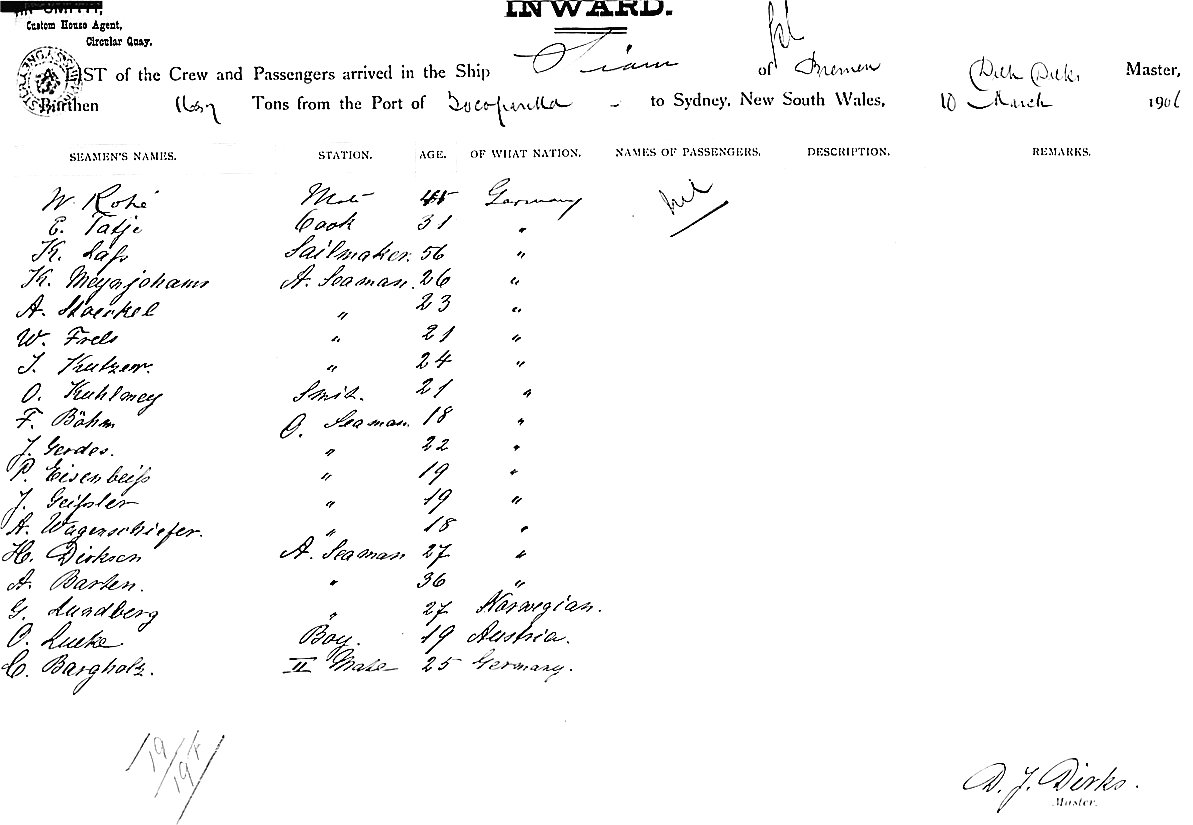 INWARD.
Custom House Agent,
Circular Quay.
LIST of the Crew and Passengers arrived in the Ship Siam of Bremen Dirk Dirks Master,
Burthen Tons from the Port of Tocopilla - to Sydney, New South Wales, 10 March 1906
SEAMEN'S NAMES. STATION. AGE. OF WHAT NATION. NAMES OF PASSENGERS. DESCRIPTION. REMARKS.
W. Rohé Mate 45 Germany nil
E. Tatje Cook 31 "
K. Laſs Sailmaker. 56 "
K. Meyerjohanns A. Seaman. 26 "
A. Stoeckel " 23 "
W. Frels " 21 "
J. Kutzer. " 24 "
O. Kuhlmey Smit. 21 "
F. Böhm O. Seaman. 18 "
J. Gerdes. " 22 "
P. Eisenbeiſs " 19 "
J. Geiſsler " 19 "
A. Wagenschiefer. " 18 "
H. Dirksen A. Seaman 27 "
A. Barten. " 36 "
G. Lundberg " 27 Norwegian.
O. Lueke. Boy. 19 Austria.
C. Bargholz. II Mate 25 Germany.
19/19
D. J. Dirks.
Master.